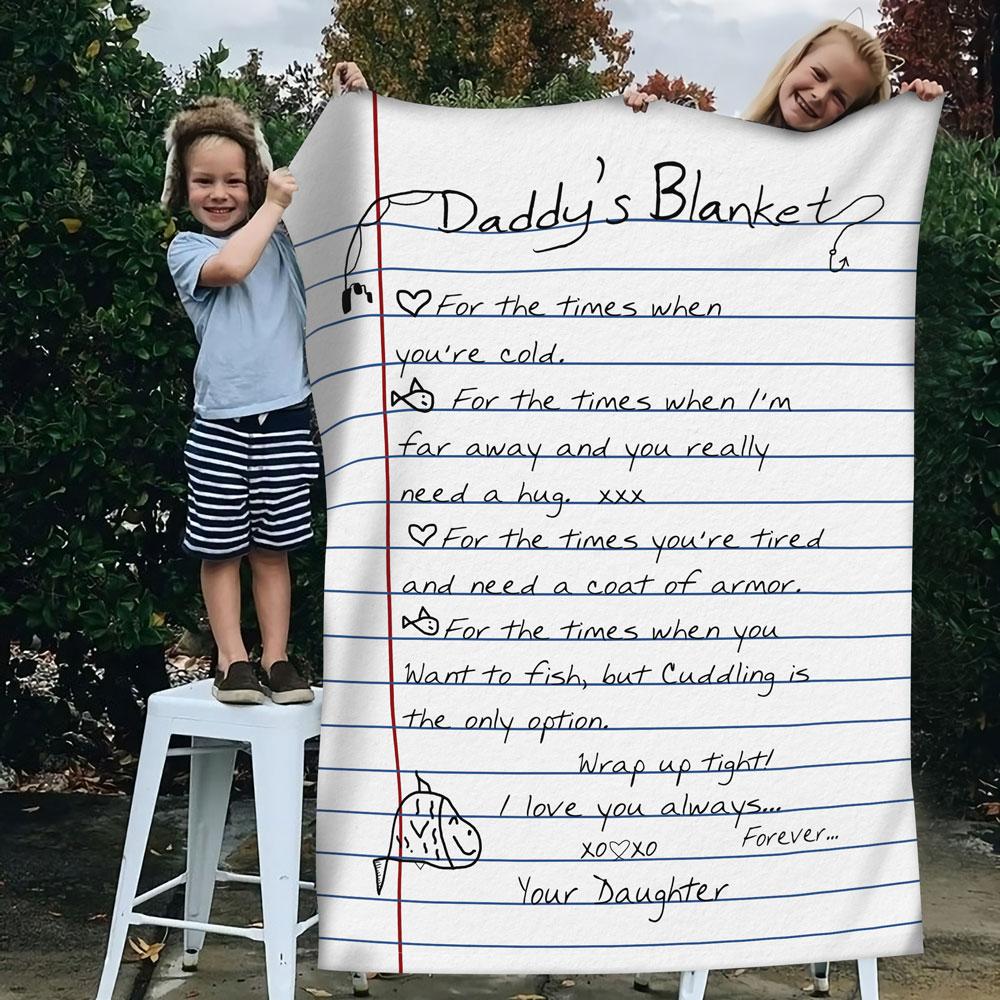 Daddy's Blanket
For the times when
you're cold.
For the times when I'm
far away and you really
need a hug. xxx
For the times you're tired
and need a coat of armor.
For the times when you
Want to fish, but Cuddling is
the only option.
Wrap up tight!
I love you always...
Forever...
XO♡XO
Your Daughter